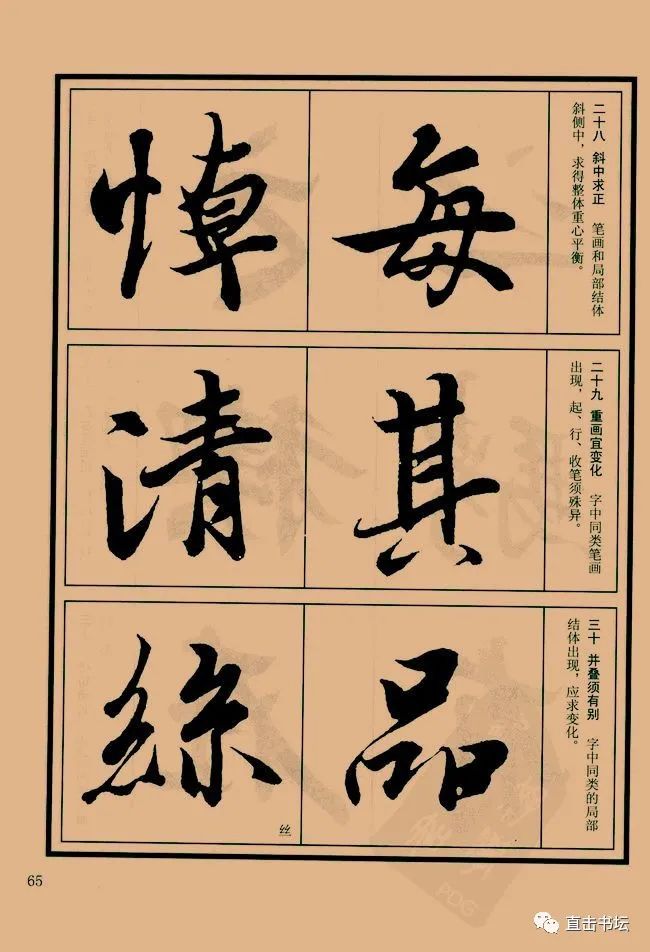 二十八 斜中求正 笔画和局部结体
斜侧中，求得整体重心平衡。
每
悼
二十九 重画宜变化 字中同类笔画
出现，起、行、收笔须殊异。
其
清
三十 并叠须有别 字中同类的局部
结体出现，应求变化。
品
絲
丝
65
直击书坛
PDG